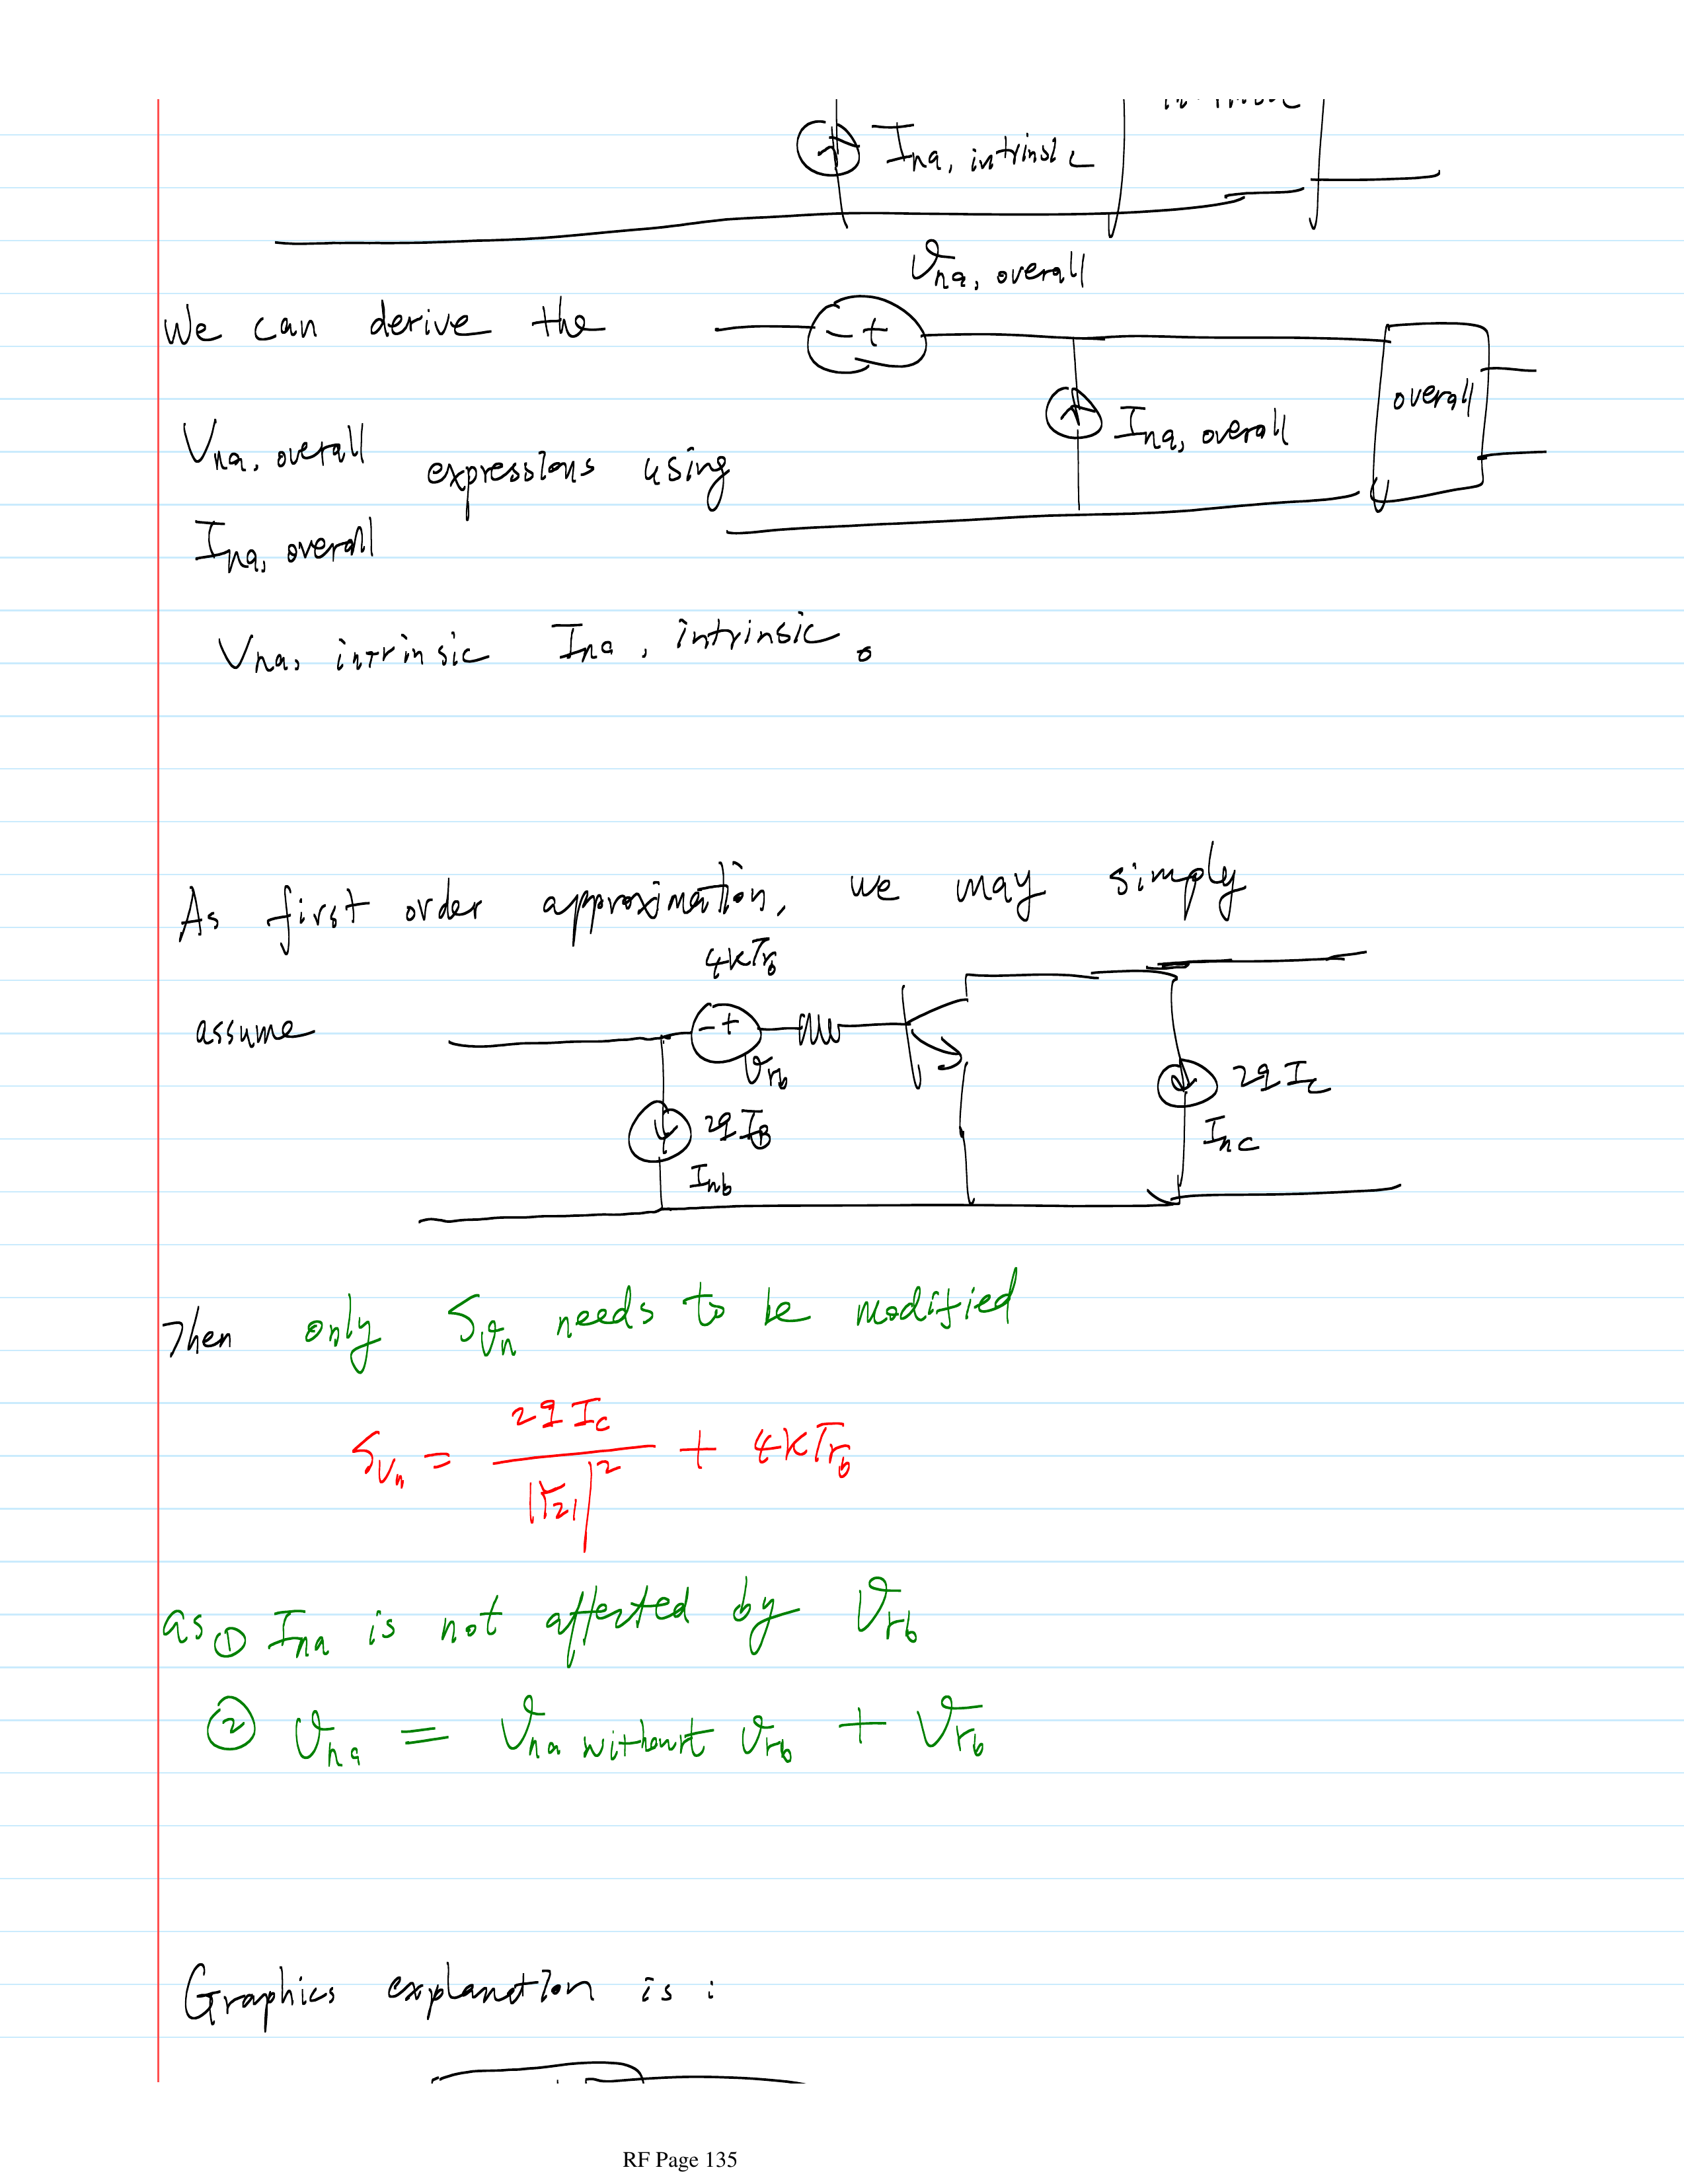 Ina, intrinsic
Vna, overall
We can derive the
- +
overall
Ina, overall
Vna, overall
expressions using
Ina, overall
Vna, intrinsic Ina, intrinsic.
As first order approximation, we may simply
4KTrb
assume
- +
Vrb
2qIB
Inb
2qIc
Inc
Then only Svn needs to be modified
Svn = 2qIc / |Y21|² + 4KTrb
as ① Ina is not affected by Vrb
② Vna = Vna without Vrb + Vrb
Graphics explanation is :
RF Page 135